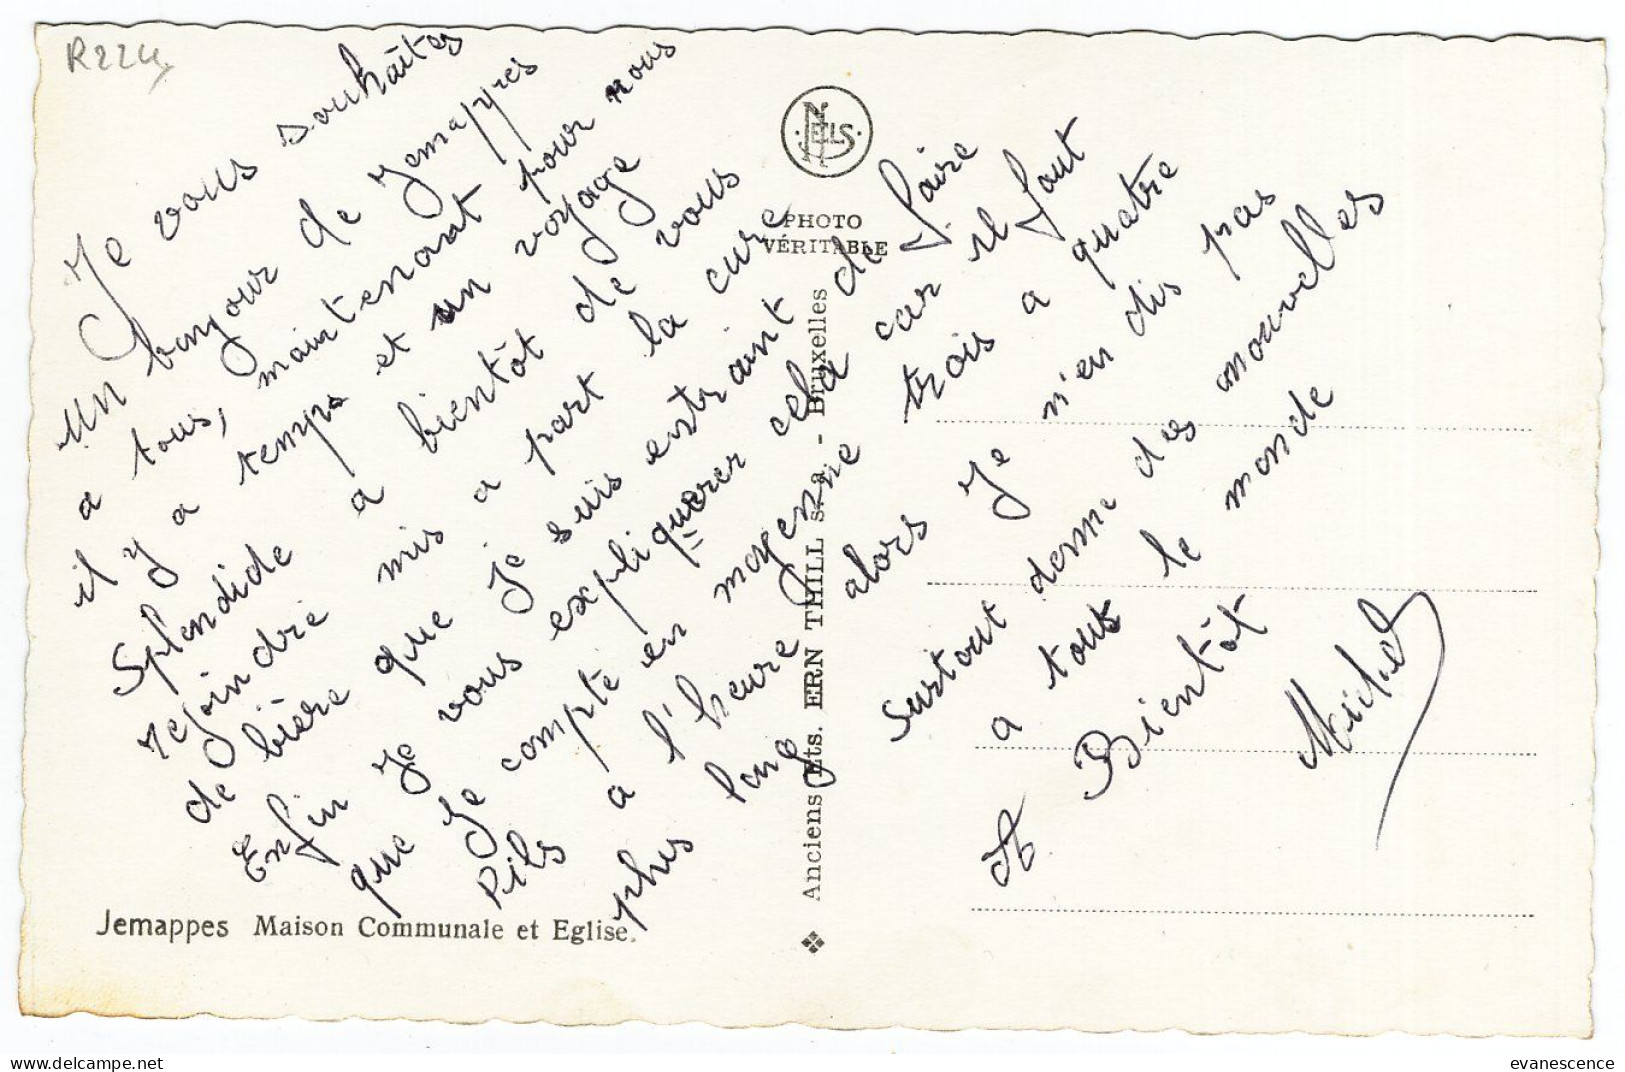 R224
Je vous souhaites
un bonjour de Jemappes
a tous, maintenant pour nous
il y a temps et un voyage
Splendide a bientôt de vous
rejoindre mis a part la cure
de bière que je suis entraint de faire
Enfin Je vous expliquerer cela car il faut
que Je compte en moyenne trois a quatre
Pils a l'heure alors Je n'en dis pas
plus long surtout donne des nouvelles
a tous le monde
A Bientôt
Michel
NELS
PHOTO
VÉRITABLE
Anciens Ets. ERN THILL s. a. - Bruxelles
Jemappes Maison Communale et Eglise.
evanescence